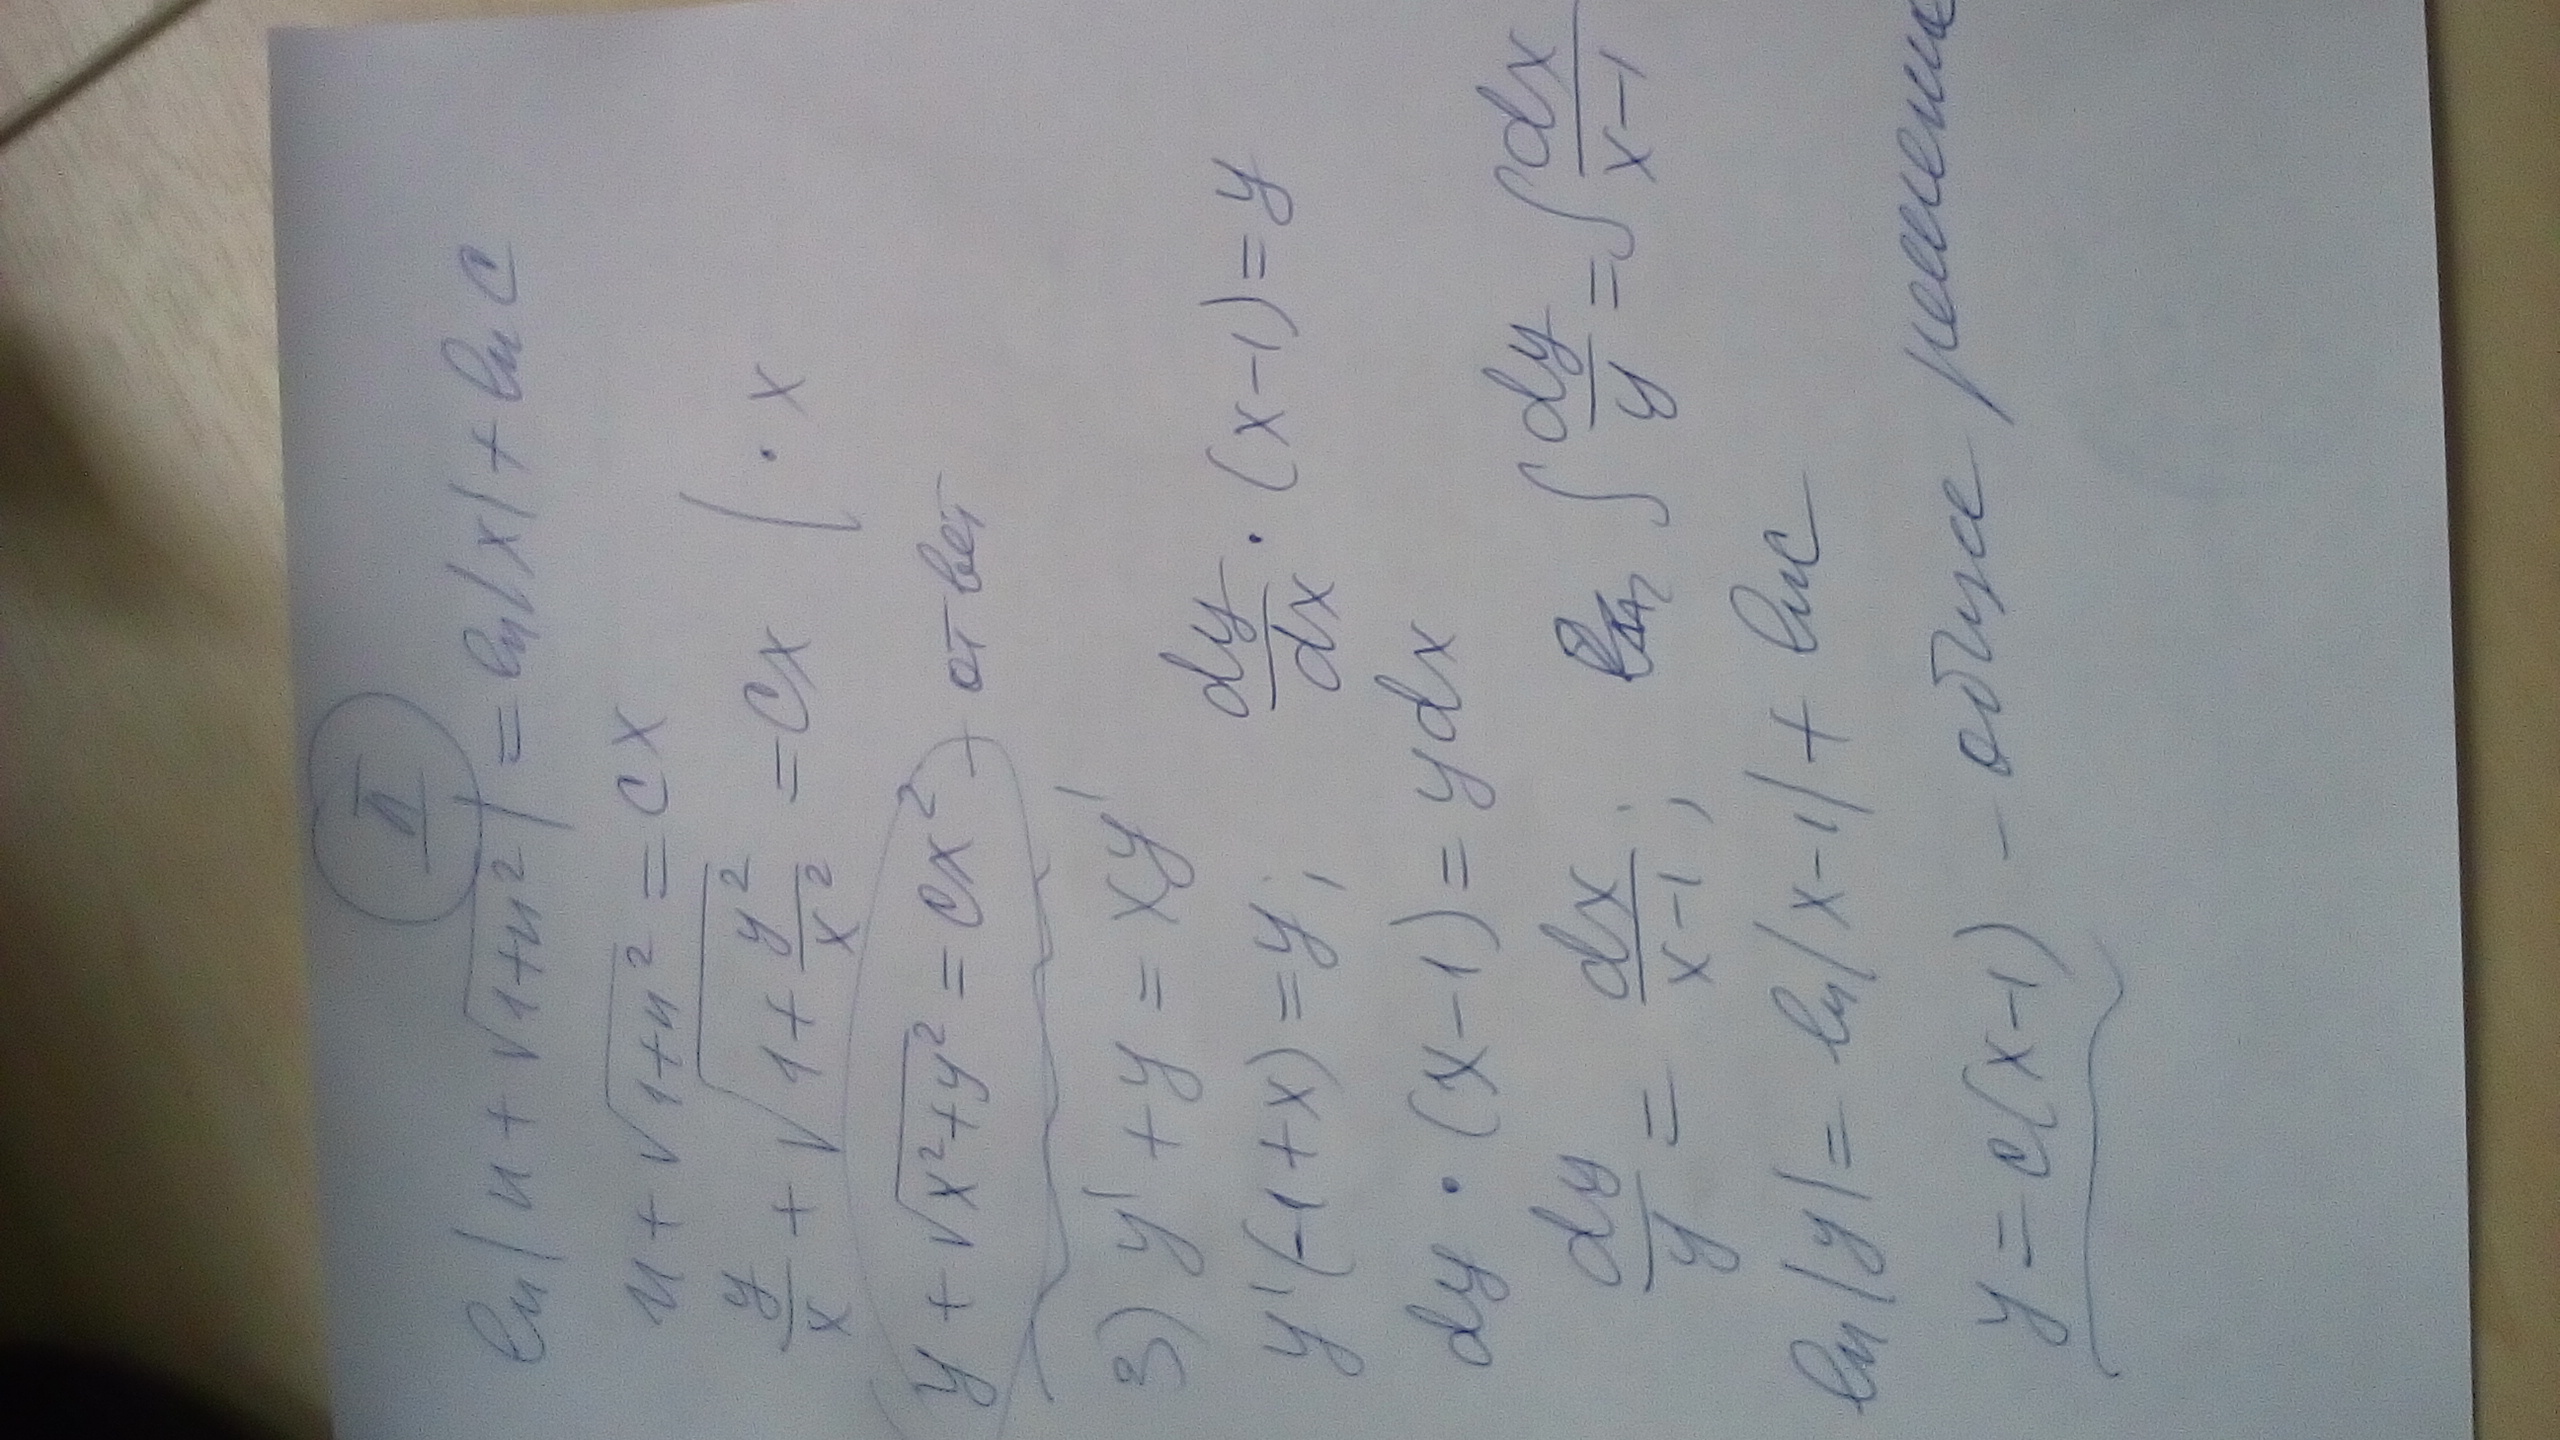 II
ln|u+√(1+u²)| = ln|x|+ln c
u+√(1+u²) = cx
y/x + √(1+y²/x²) = cx | · x
y+√(x²+y²) = cx² - ответ
3) y' + y = xy'
y'(-1+x) = y; dy/dx · (x-1) = y
dy · (x-1) = y dx
dy/y = dx/(x-1); ∫ dy/y = ∫ dx/(x-1)
ln|y| = ln|x-1| + ln c
y = c(x-1) - общее решение